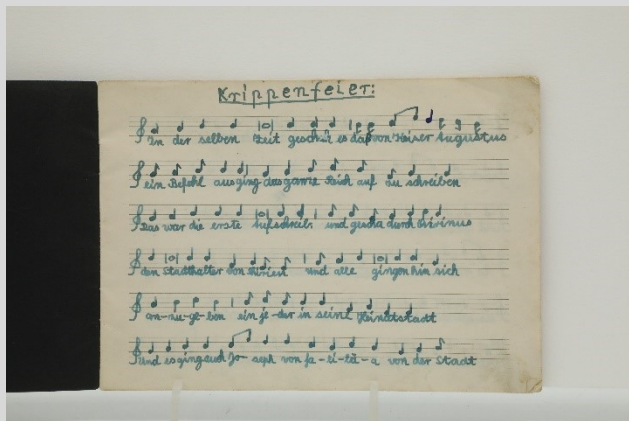 Krippenfeier:
In der selben Zeit geschah es daß von Keiser Augustus
ein Befehl ausging das ganze Reich auf zu schreiben
Das war die erste aufschreib. und gescha durch Qirinus
den Stadthalter von und alle gingen hin sich
an-zu-ge-ben ein je-der in seine Heimatstadt
und es ging auch Jo-seph von ga-li-lä-a von der Stadt